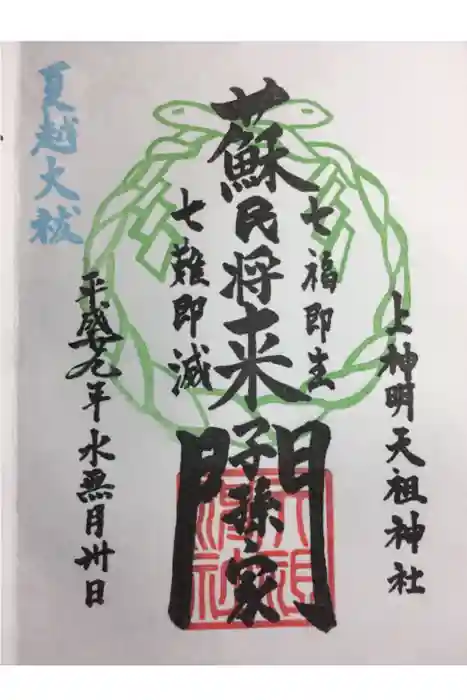 上神明天祖神社
七福即生
蘇民将来子孫家門
七難即滅
夏越大祓
平成廿九年水無月卅日
天祖
神社